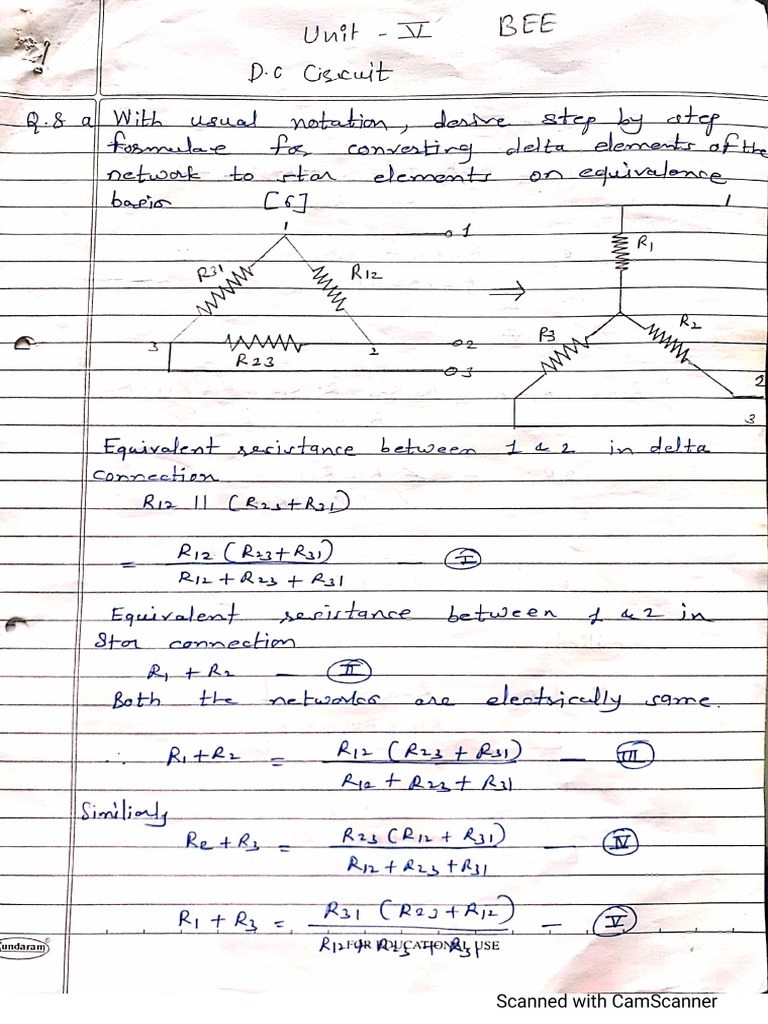 Unit - V BEE
D.C Circuit
Q.8 a With usual notation, derive step by step
formulae for converting delta elements of the
network to star elements on equivalence
basis [6]
1 1 1
R31 R12 ⇒ R1
3 R23 2 2 R3 R2
3 2
3
Equivalent resistance between 1 & 2 in delta
connection
R12 || (R23+R31)
= R12 (R23+R31) / R12 + R23 + R31 — I
Equivalent resistance between 1 & 2 in
Star connection
R1 + R2 — II
Both the networks are electrically same.
∴ R1+R2 = R12 (R23 + R31) / R12 + R23 + R31 — III
Similiarly
R2 + R3 = R23 (R12 + R31) / R12 + R23 + R31 — IV
R1 + R3 = R31 (R23 + R12) / R12 + R23 + R31 — V
undaram FOR EDUCATIONAL USE
Scanned with CamScanner